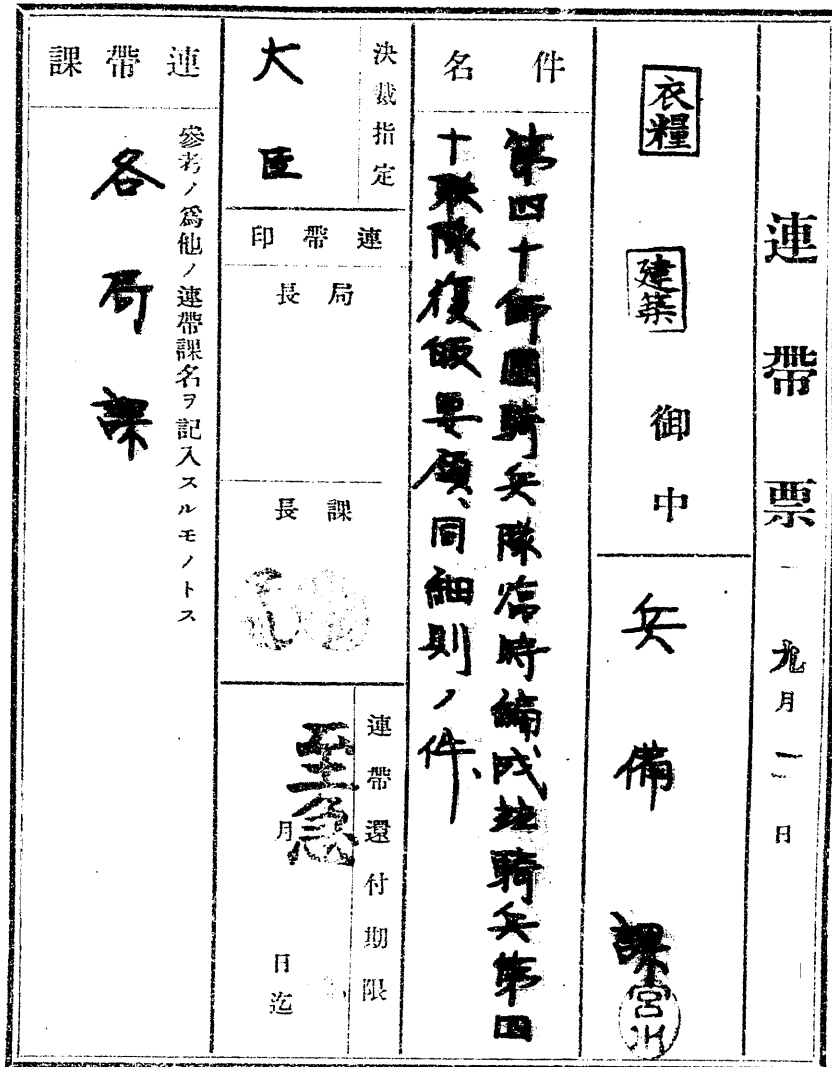 連帶票 九月一日
衣糧 建築 御中
兵備課 宮川
件名
第四十師團騎兵隊臨時編成竝騎兵第四
十聯隊復皈要領、同細則ノ件、
決裁指定
大臣
連帶印
局長
課長
連帶還付期限
至急
月 日迄
連帶課
參考ノ爲他ノ連帶課名ヲ記入スルモノトス
各局課